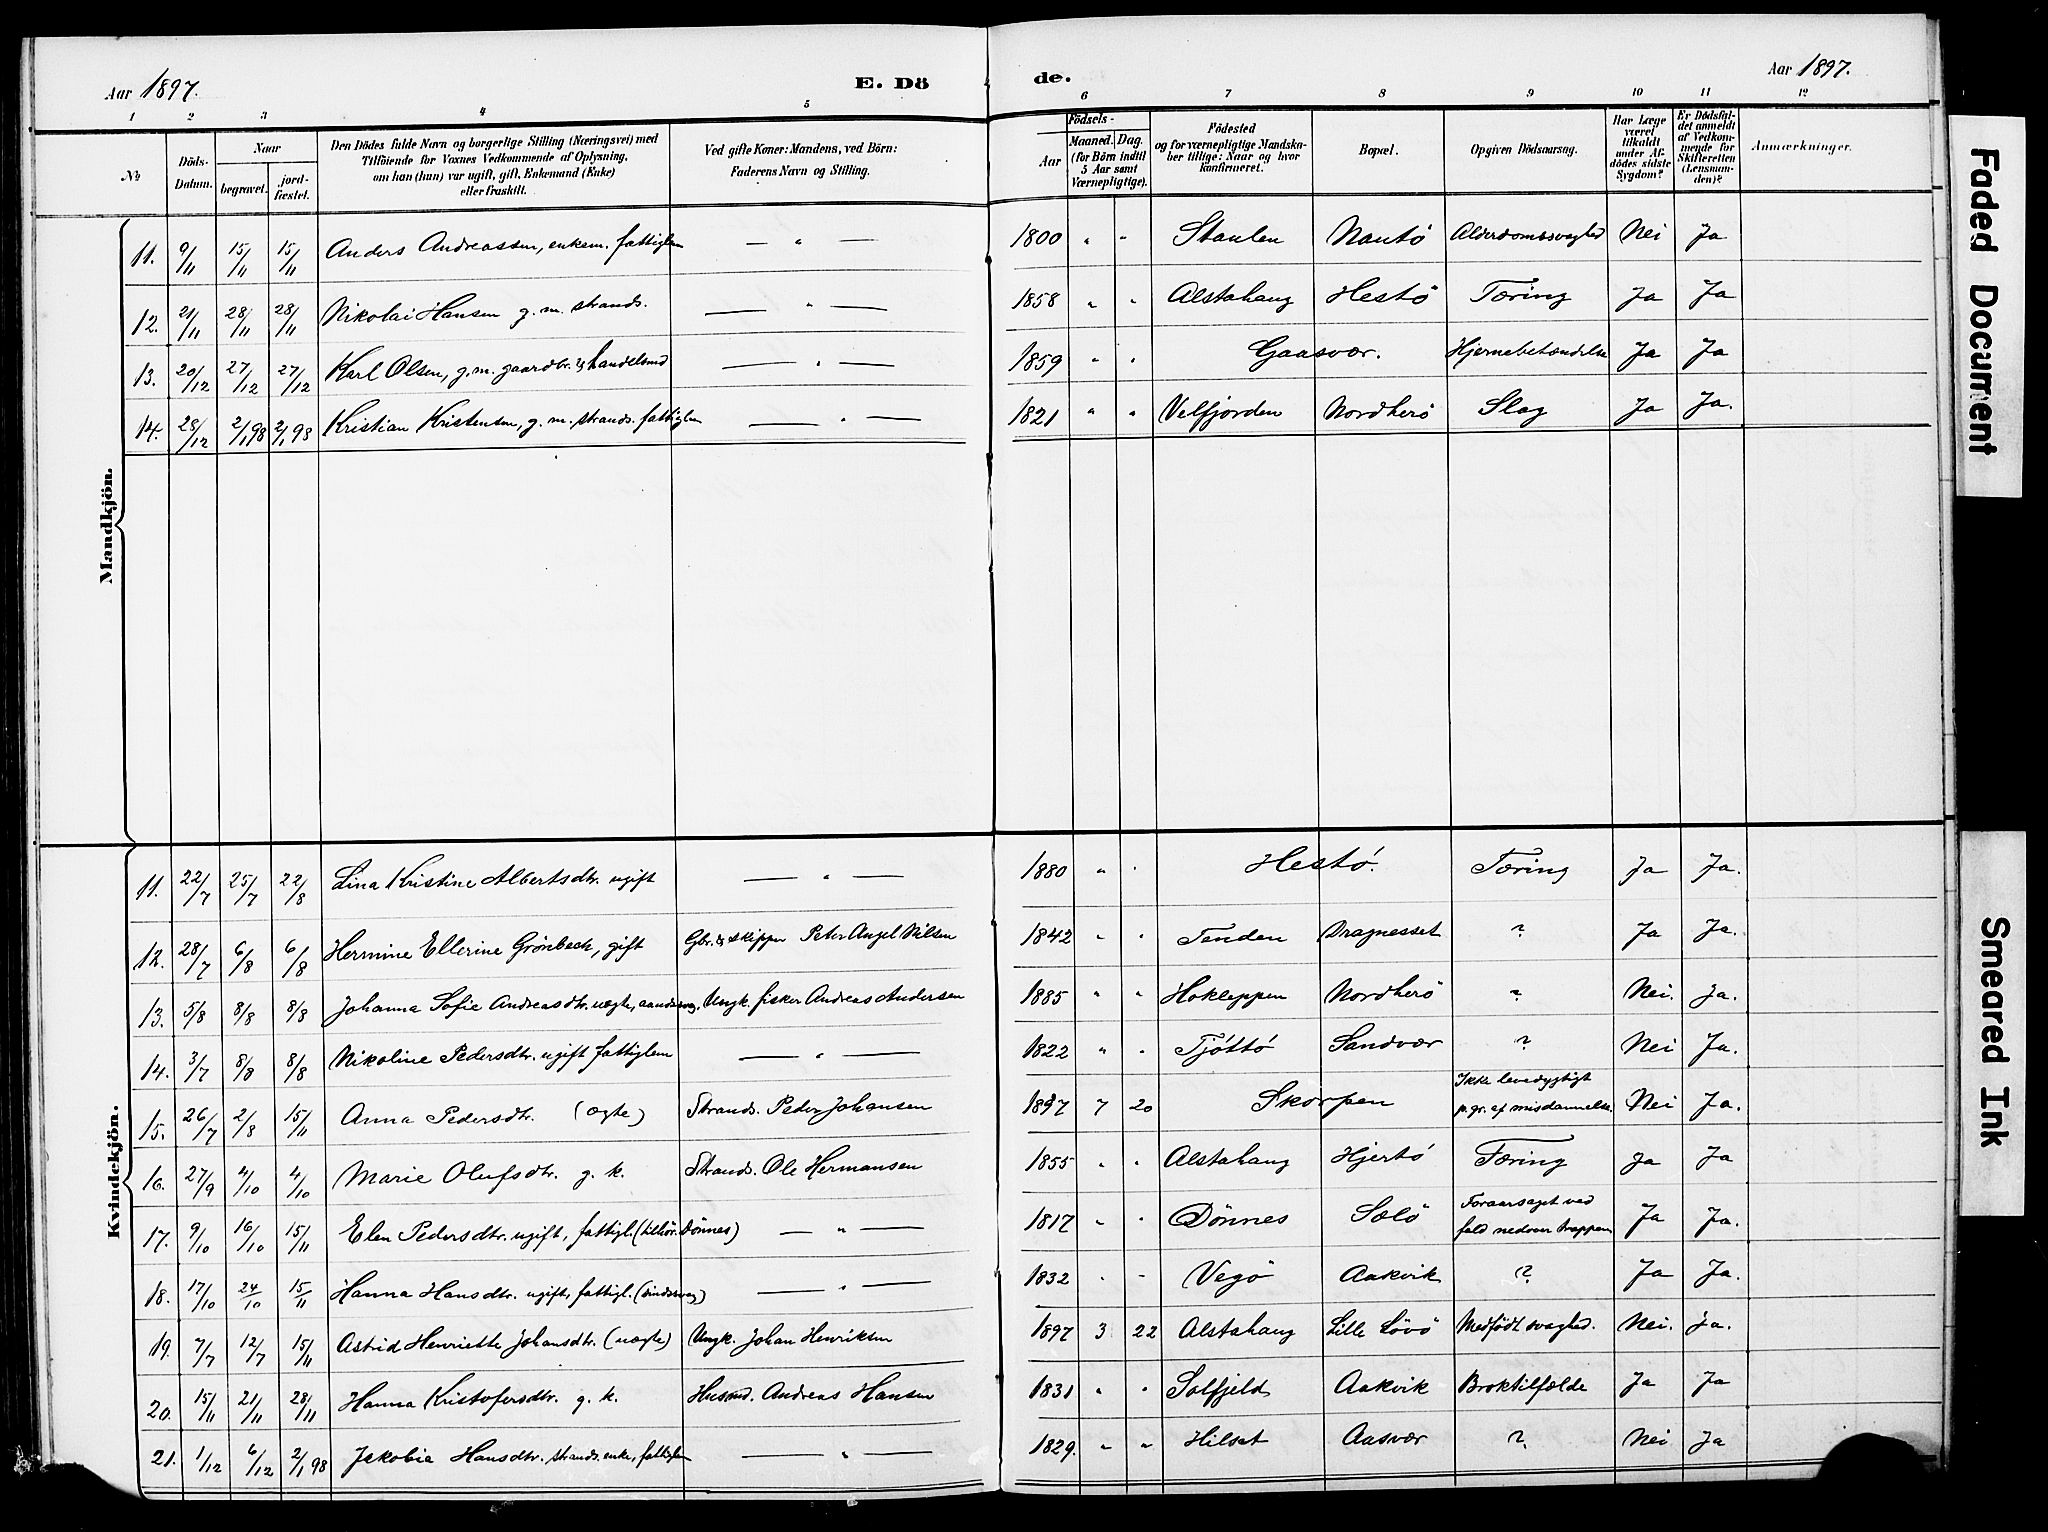 Aar 1897. E. Dö de. Aar 1897.
1 2 3 4 5 6 7 8 9 10 11 12
№
Döds-Datum.
Naar
begravet.
jord-fæstet.
Den Dödes fulde Navn og borgerlige Stilling (Næringsvei) med
Tilföiende for Voxnes Vedkommende af Oplysning,
om han (hun) var ugift, gift, Enkemand (Enke)
eller fraskilt.
Ved gifte Koner: Mandens, ved Börn:
Faderens Navn og Stilling.
Födsels-
Aar
Maaned. Dag.
(for Börn indtil
5 Aar samt
Værnepligtige).
Födested
og for værnepligtige Mandska-
ber tillige: Naar og hvor
konfirmeret.
Bopæl.
Opgiven Dödsaarsag.
Har Læge
været
tilkaldt
under Af-
dödes sidste
Sygdom?
Er Dödsfal-
det anmeldt
af Vedkom-
mende for
Skifteretten
(Lensman-
den)?
Anmærkninger.
Mandkjön.
11. 9/11 15/11 15/11 Anders Andreassen, enkem. fattiglem — " — 1800 " " Staulen Nautö Alderdomssvaghed Nei Ja
12. 21/11 28/11 28/11 Nikolai Hansen g. m. strands. — " — 1858 " " Alstahaug Hestö Tæring Ja Ja
13. 20/12 27/12 27/12 Karl Olsen, g. m. gaardbr. & handelsmd — " — 1859 " " Gaasvær. Hjernebetændelse Ja Ja
14. 28/12 2/1 98 2/1 98 Kristian Kristensen, g. m. strands. fattiglem — " — 1821 " " Velfjorden Nordherö Slag Ja Ja.
Kvindekjön.
11. 22/7 25/7 22/8 Lina Kristine Albertsdtr. ugift — " — 1880 " " Hestö. Tæring Ja Ja.
12. 28/7 6/8 6/8 Hermine Ellerine Grönbech, gift Gbr. & skipper Peter Angel Nilsen 1842 " " Tenden Dragnesset ? Ja Ja.
13. 5/8 8/8 8/8 Johanna Sofie Andreasdtr. uægte, aandssvag. Ungk. fisker Andreas Andersen 1885 " " Hokleppen Nordherö ? Nei. Ja.
14. 3/7 8/8 8/8 Nikoline Pedersdtr. ugift fattiglem — " — 1822 " " Tjöttö Sandvær ? Nei Ja.
15. 26/7 2/8 15/11 Anna Pedersdtr. (ægte) Strands. Peder Johansen 1897 7 20 Skorpen Ikke levedygtigt
p. gr. af misdannelse. Nei Ja.
16. 27/9 4/10 4/10 Marie Olufsdtr. g. k. Strands. Ole Hermansen 1855 " " Alstahaug Hjertö Tæring Ja Ja
17. 9/10 16/10 15/11 Elen Pedersdtr. ugift, fattigl. (tilhör. Dönnes) — " — 1817 " " Dönnes Solö Foraarsaget ved
fald nedover trappen Ja Ja.
18. 17/10 24/10 15/11 Hanna Hansdtr. ugift, fattigl. (sindssvag) — " — 1832 " " Vegö Aakvik ? Ja Ja.
19. 7/7 12/7 15/11 Astrid Henriette Johansdtr. (uægte) Ungk. Johan Henriksen 1897 3 22 Alstahaug Lille Lövö Medfödt svaghed. Nei. Ja.
20. 15/11 21/11 28/11 Hanna Kristofersdtr. g. k. Husmd. Andreas Hansen 1831 " " Solfjeld Aakvik Broktilfælde Ja Ja
21. 1/12 6/12 2/1 98 Jakobie Hansdtr. strands. enke, fattiglem — " — 1829. " " Hilset Aasvær ? Nei Ja
Faded Document
Smeared Ink